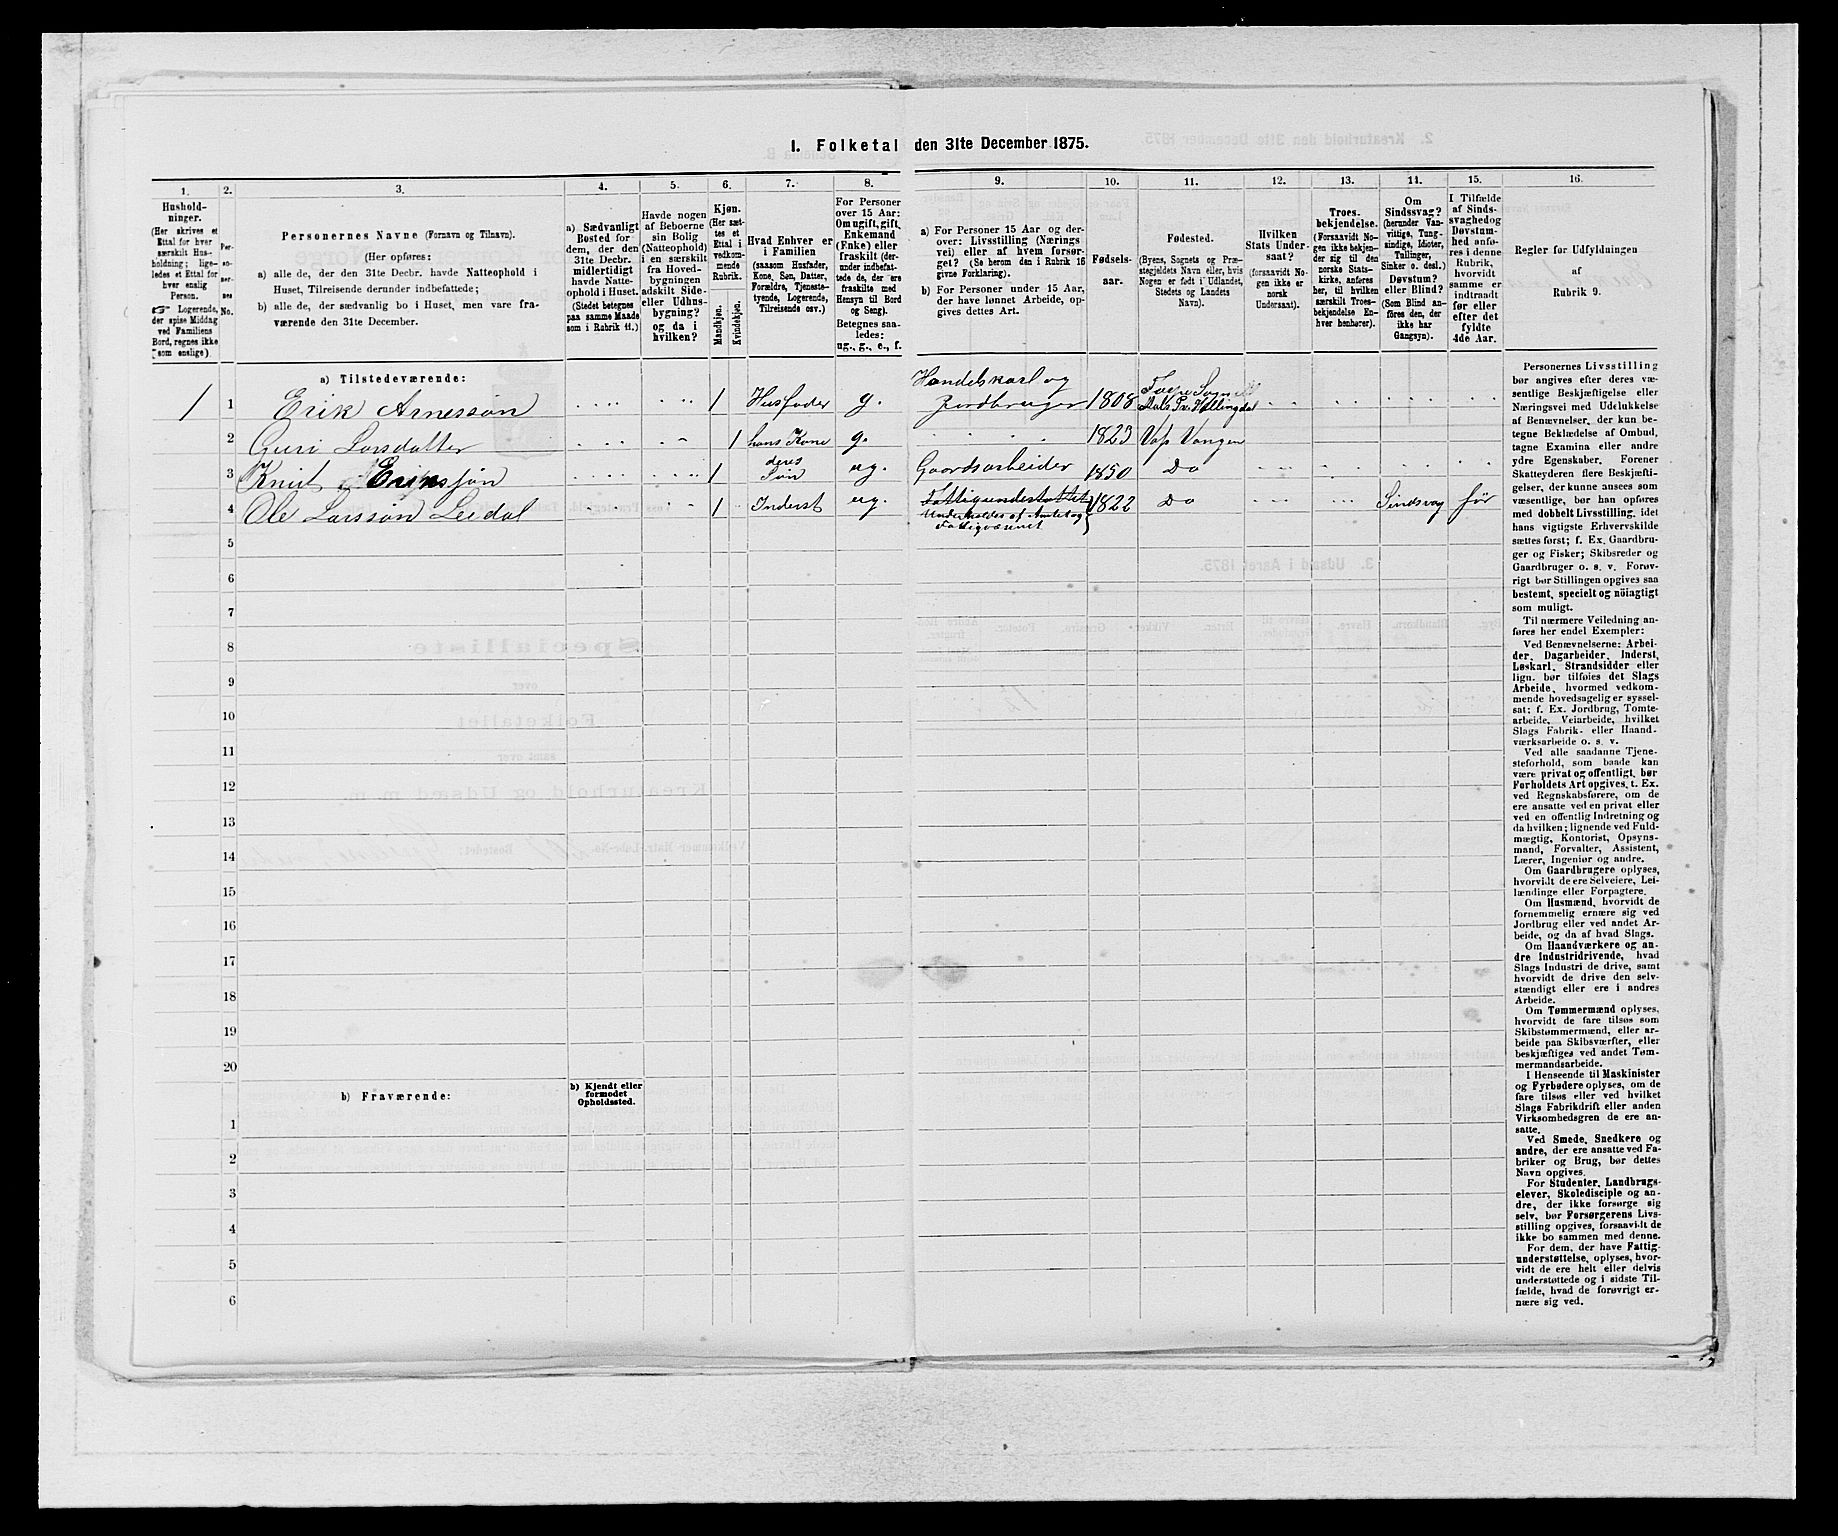 I. Folketal den 31te December 1875.
1.
2.
3.
4.
5.
6.
7.
8.
9.
10.
11.
12.
13.
14.
15.
16.
Hushold-
ninger.
(Her skrives et
Ettal for hver
særskilt Hus-
holdning; lige-
ledes et Ettal for
hver enslig
Person.
☞ Logerende,
der spise Middag
ved Familiens
Bord, regnes ikke
som enslige).
Per-
so-
ner-
nes
No.
Personernes Navne (Fornavn og Tilnavn).
(Her opføres:
a) alle de, der den 31te Decbr. havde Natteophold i
Huset, Tilreisende derunder indbefattede;
b) alle de, der sædvanlig bo i Huset, men vare fra-
værende den 31te December.
a) Sædvanligt
Bosted for
dem, der den
31te Decbr.
midlertidigt
havde Natte-
ophold i Huset.
(Stedet betegnes
paa samme Maade
som i Rubrik 11.)
Havde nogen
af Beboerne
sin Bolig
(Natteophold)
i en særskilt
fra Hoved-
bygningen
adskilt Side-
eller Udhus-
bygning?
og da i
hvilken?
Kjøn.
(Her sæt-
tes et
Ettal i
vedkom-
mende
Rubrik.
Mandkjøn.
Kvindekjøn.
Hvad Enhver er
i Familien
(saasom Husfader,
Kone, Søn, Datter,
Forældre, Tjeneste-
tyende, Logerende,
Tilreisende osv.)
For Personer
over 15 Aar:
Om ugift, gift,
Enkemand
(Enke) eller
fraskilt (der-
under indbefat-
tede de, der ere
fraskilte med
Hensyn til Bord
og Seng).
Betegnes saa-
ledes:
ug., g., e., f.
a) For Personer 15 Aar og der-
over: Livsstilling (Nærings-
vei) eller af hvem forsør-
get? (Se herom den i Rubrik 16
givne Forklaring).
b) For Personer under 15 Aar,
der have lønnet Arbeide, op-
gives dettes Art.
Fødsels-
aar.
Fødested.
(Byens, Sognets og Præ-
stegjeldets Navn eller, hvis
Nogen er født i Udlandet,
Stedets og Landets
Navn).
Hvilken
Stats Under-
saat?
(forsaavidt No-
gen ikke er
norsk
Undersaat).
Troes-
bekjendelse.
(Forsaavidt No-
gen ikke bekjen-
der sig til den
norske Stats-
kirke, anføres
her, til hvilken
særskilt Troes-
bekjendelse En-
hver henhører).
Om
Sindssvag?
(herunder Van-
vittige, Tung-
sindige, Idioter,
Tullinger,
Sinker o. desl.)
Døvstum?
eller Blind?
(Som Blind an-
føres den, der
ikke har
Gangsyn).
I Tilfælde
af Sinds-
svaghed og
Døvstum-
hed anfø-
res i denne
Rubrik,
hvorvidt
samme er
indtraadt
før eller
efter det
fyldte
4de Aar.
Regler for Udfyldningen
af
Rubrik 9.
a) Tilstedeværende:
1 1 Erik Arnessøn 1 Husfader g. Handelskarl og Jordbruger 1808
2 Guri Larsdatter 1 hans Kone g. 1823
3 Knut Erikssøn 1 deres Søn ug. Gaardsarbeider 1850 Do
4 Ole Larssøn Leidal 1 Inderst ug. Fattigunderstøttet Underholdes af Amtet og Fattigvæsenet 1822 Do Sindsvag før
5
6
7
8
9
10
11
12
13
14
15
16
17
18
19
20
b) Fraværende:
b) Kjendt eller
formodet
Opholdssted.
1
2
3
4
5
6
Personernes Livsstilling
bør angives efter deres væ-
sentlige Beskjæftigelse eller
Næringsvei med Udelukkelse
af Benævnelser, der kun be-
tegne Beklædelse af Ombud,
tagne Examina eller andre
ydre Egenskaber. Forener
Skatteyderen flere Beskjæfti-
gelser, der kunne ansees som
væsentlige, bør han opføres
med dobbelt Livsstilling, idet
hans vigtigste Erhvervskilde
sættes først; f. Ex. Gaardbru-
ger og Fisker; Skibsreder og
Gaardbruger o. s. v. Forøv-
rigt bør Stillingen opgives saa
bestemt, specielt og nöiagtigt
som muligt.
Til nærmere Veiledning an-
føres her endel Exempler:
Ved Benævnelserne: Arbei-
der, Dagarbeider, Inderst,
Løskarl, Strandsidder eller
lign. bør tilføies det Slags
Arbeide, hvormed vedkom-
mende hovedsagelig er syssel-
sat; f. Ex. Jordbrug, Tomte-
arbeide, Veiarbeide, hvilket
Slags Fabrik- eller Haand-
værksarbeide o. s. v.
Ved alle saadanne Tjene-
steforhold, som baade kan
være privat og offentligt, bør
Forholdets Art opgives, t. Ex.
ved Regnskabsførere, om de
ere ansatte ved en privat eller
ved en offentlig Indretning og
da hvilken; lignende ved Fuld-
mægtig, Kontorist, Opsyns-
mand, Forvalter, Assistent,
Lærer, Ingeniør og andre.
Om Gaardbrugere oplyses,
hvorvidt de ere Selveiere, Lei-
lændinge eller Forpagtere.
Om Husmænd, hvorvidt de
fornemmelig ernære sig ved
Jordbrug eller ved andet Ar-
beide, og da af hvad Slags.
Om Haandværkere og an-
dre Industridrivende, hvad
Slags Industri de drive, samt
hvorvidt de drive den selv-
stændigt eller ere i andres
Arbeide.
Om Tømmermænd oplyses,
hvorvidt de fare tilsøs som
Skibstømmermænd, eller ar-
beide paa Skibsværfter, eller
beskjæftiges ved andet Tøm-
mermandsarbeide.
I Henseende til Maskinister
og Fyrbødere oplyses, om de
fare tilsøs eller ved hvilket
Slags Fabrikdrift eller anden
Virksomhedsgren de ere an-
satte.
Ved Smede, Snedkere og
andre, der ere ansatte ved Fa-
briker og Brug, bør dettes
Navn opgives.
For Studenter, Landbrugs-
elever, Skoledisciple og an-
dre, der ikke forsørge sig
selv, bør Forsørgerens Livs-
stilling opgives, forsaavidt de
ikke bo sammen med denne.
For dem, der have Fattig-
understøttelse, oplyses, hvor-
vidt de ere helt eller delvis
understøttede og i sidste Til-
fælde, hvad de forøvrigt er-
nære sig ved.